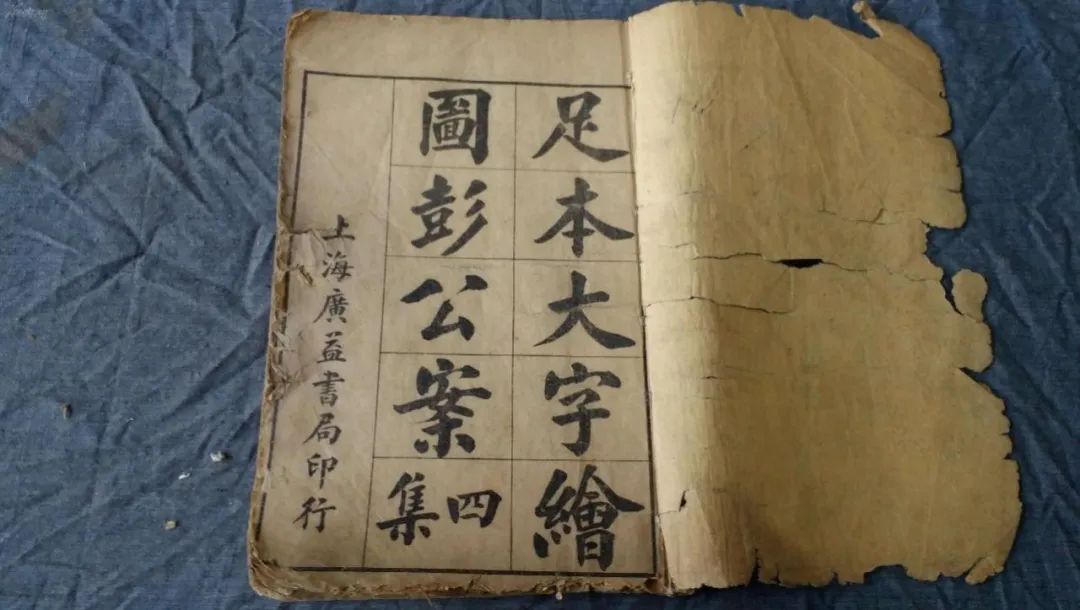 足本大字繪
圖彭公案四集
上海廣益書局印行